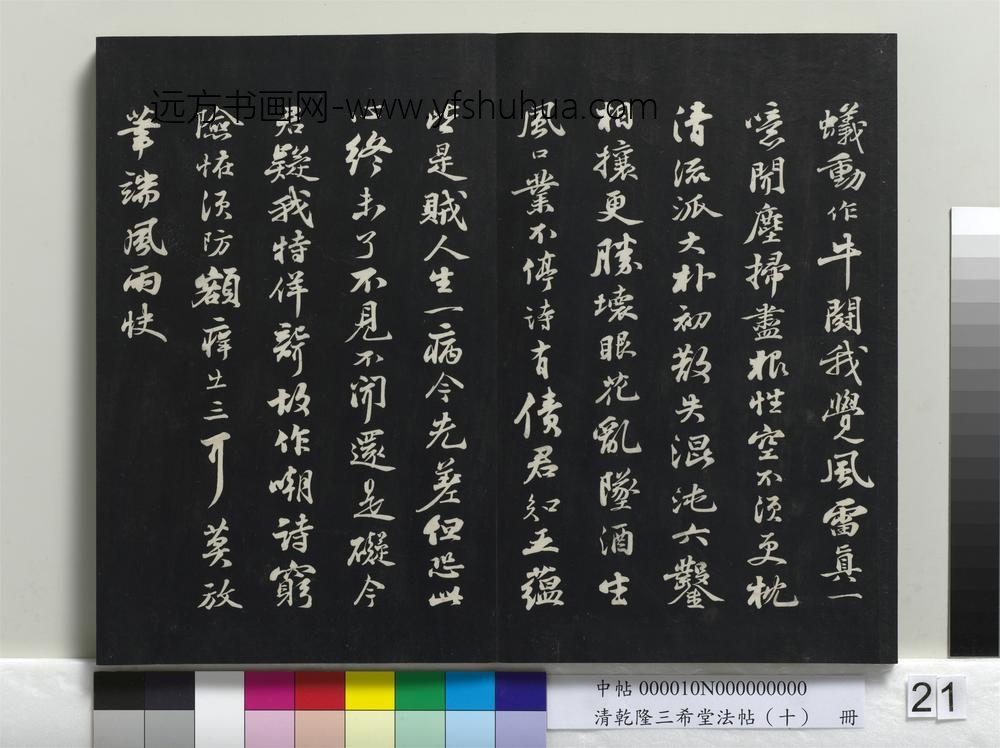 蟻動作牛鬪我覺風雷真一
噫聞塵掃盡根性空不須更枕
清流派大朴初散失混沌六鑿
相攘更勝壞眼花亂墜酒生
風口業不停詩有債君知五蘊
皆是賊人生一病今先差但恐此
心終未了不見不聞還是礙今
君疑我特佯聾故作嘲詩窮
險怪須防額癢出三耳莫放
筆端風雨快
远方书画网-www.yfshuhua.com
中帖 000010N000000000
清乾隆三希堂法帖（十） 冊
21